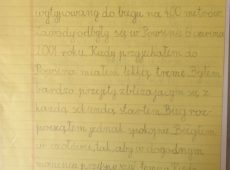 wytypowany do biegu na 400 metrów.
Zawody odbyły się w Powsinie 6 czerwca
2001 roku. Kiedy przyjechałem do
Powsina miałem lekką tremę. Byłem
bardzo przejęty zbliżającym się z
każdą sekundą startem. Bieg roz-
począłem jednak spokojnie. Biegłem
w czołówce, tak, aby w dogodnym
momencie